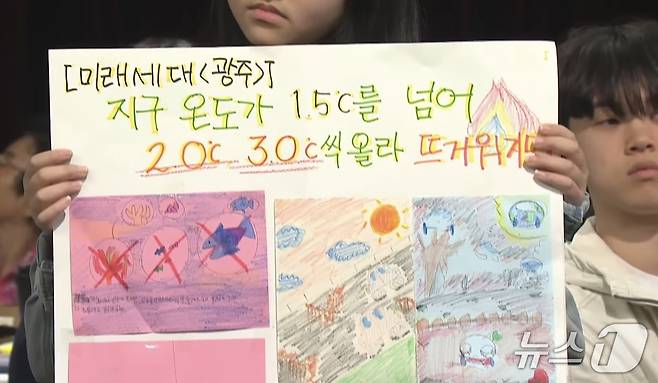 [미래세대<광주>]
지구 온도가 1.5℃를 넘어
2.0℃ 3.0℃씩 올라 뜨거워지
뉴스1